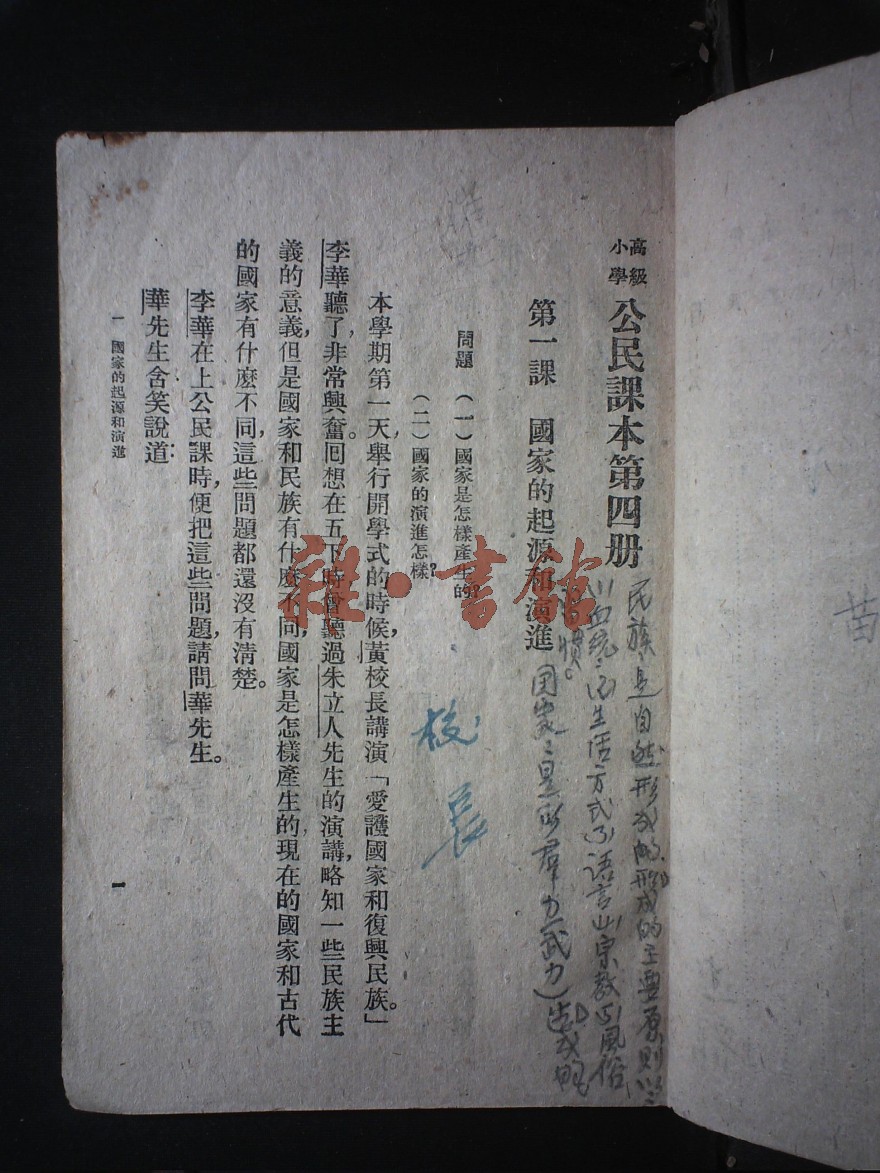 高級
小學
公民課本第四册
民族：是自然形成的.形成的主要原則
(1)血统：(2)生活方式(3)语言(4)宗教(5)風俗
習慣。
第一課　國家的起源和演進
国家：是以羣力(武力)造成的
問題　(一)國家是怎樣產生的？
(二)國家的演進怎樣？
校長
本學期第一天，舉行開學式的時候，黃校長講演「愛護國家和復興民族。」
李華聽了，非常興奮。囘想在五下時，曾聽過朱立人先生的演講，略知一些民族主
義的意義，但是國家和民族有什麼不同，國家是怎樣產生的，現在的國家和古代
的國家有什麼不同，這些問題都還沒有清楚。
李華在上公民課時，便把這些問題，請問華先生。
華先生含笑說道：
一　國家的起源和演進
一
苗
雜·書館